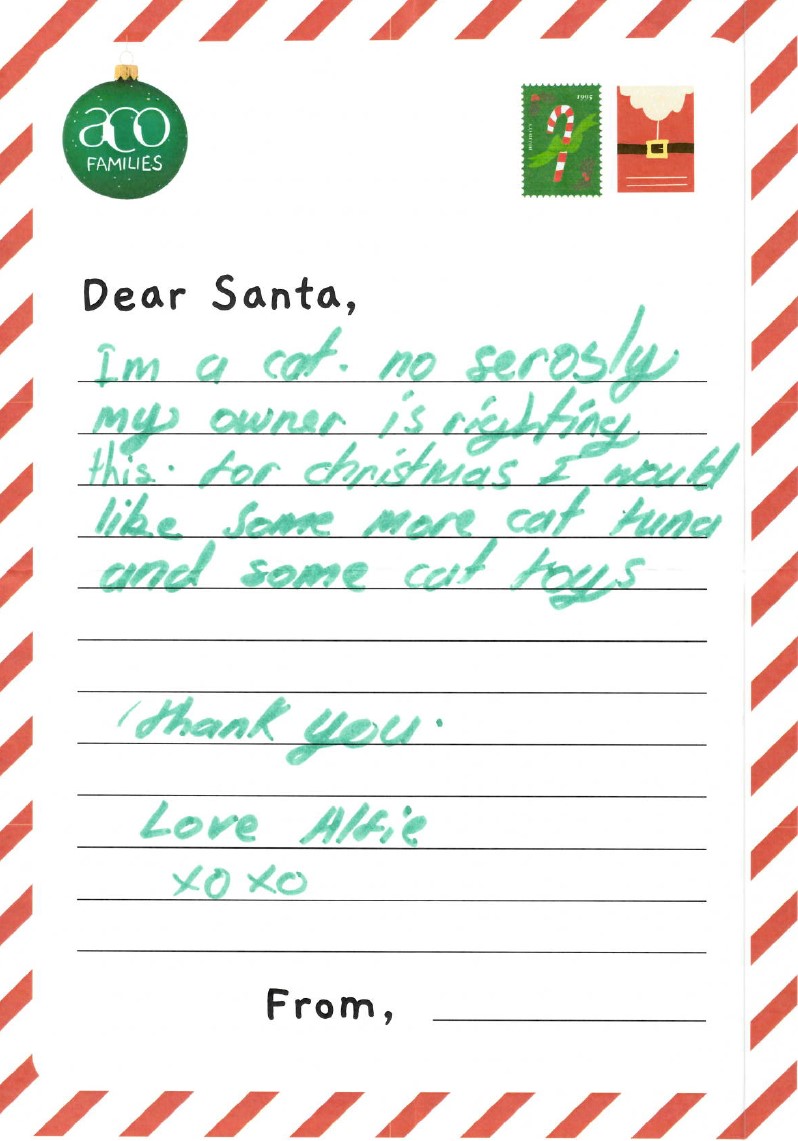 aco
FAMILIES
1995
Dear Santa,
Im a cat. no serosly
my owner is righting
this. for christmas I would
like some more cat tuna
and some cat toys
thank you.
Love Alfie
xo xo
From,